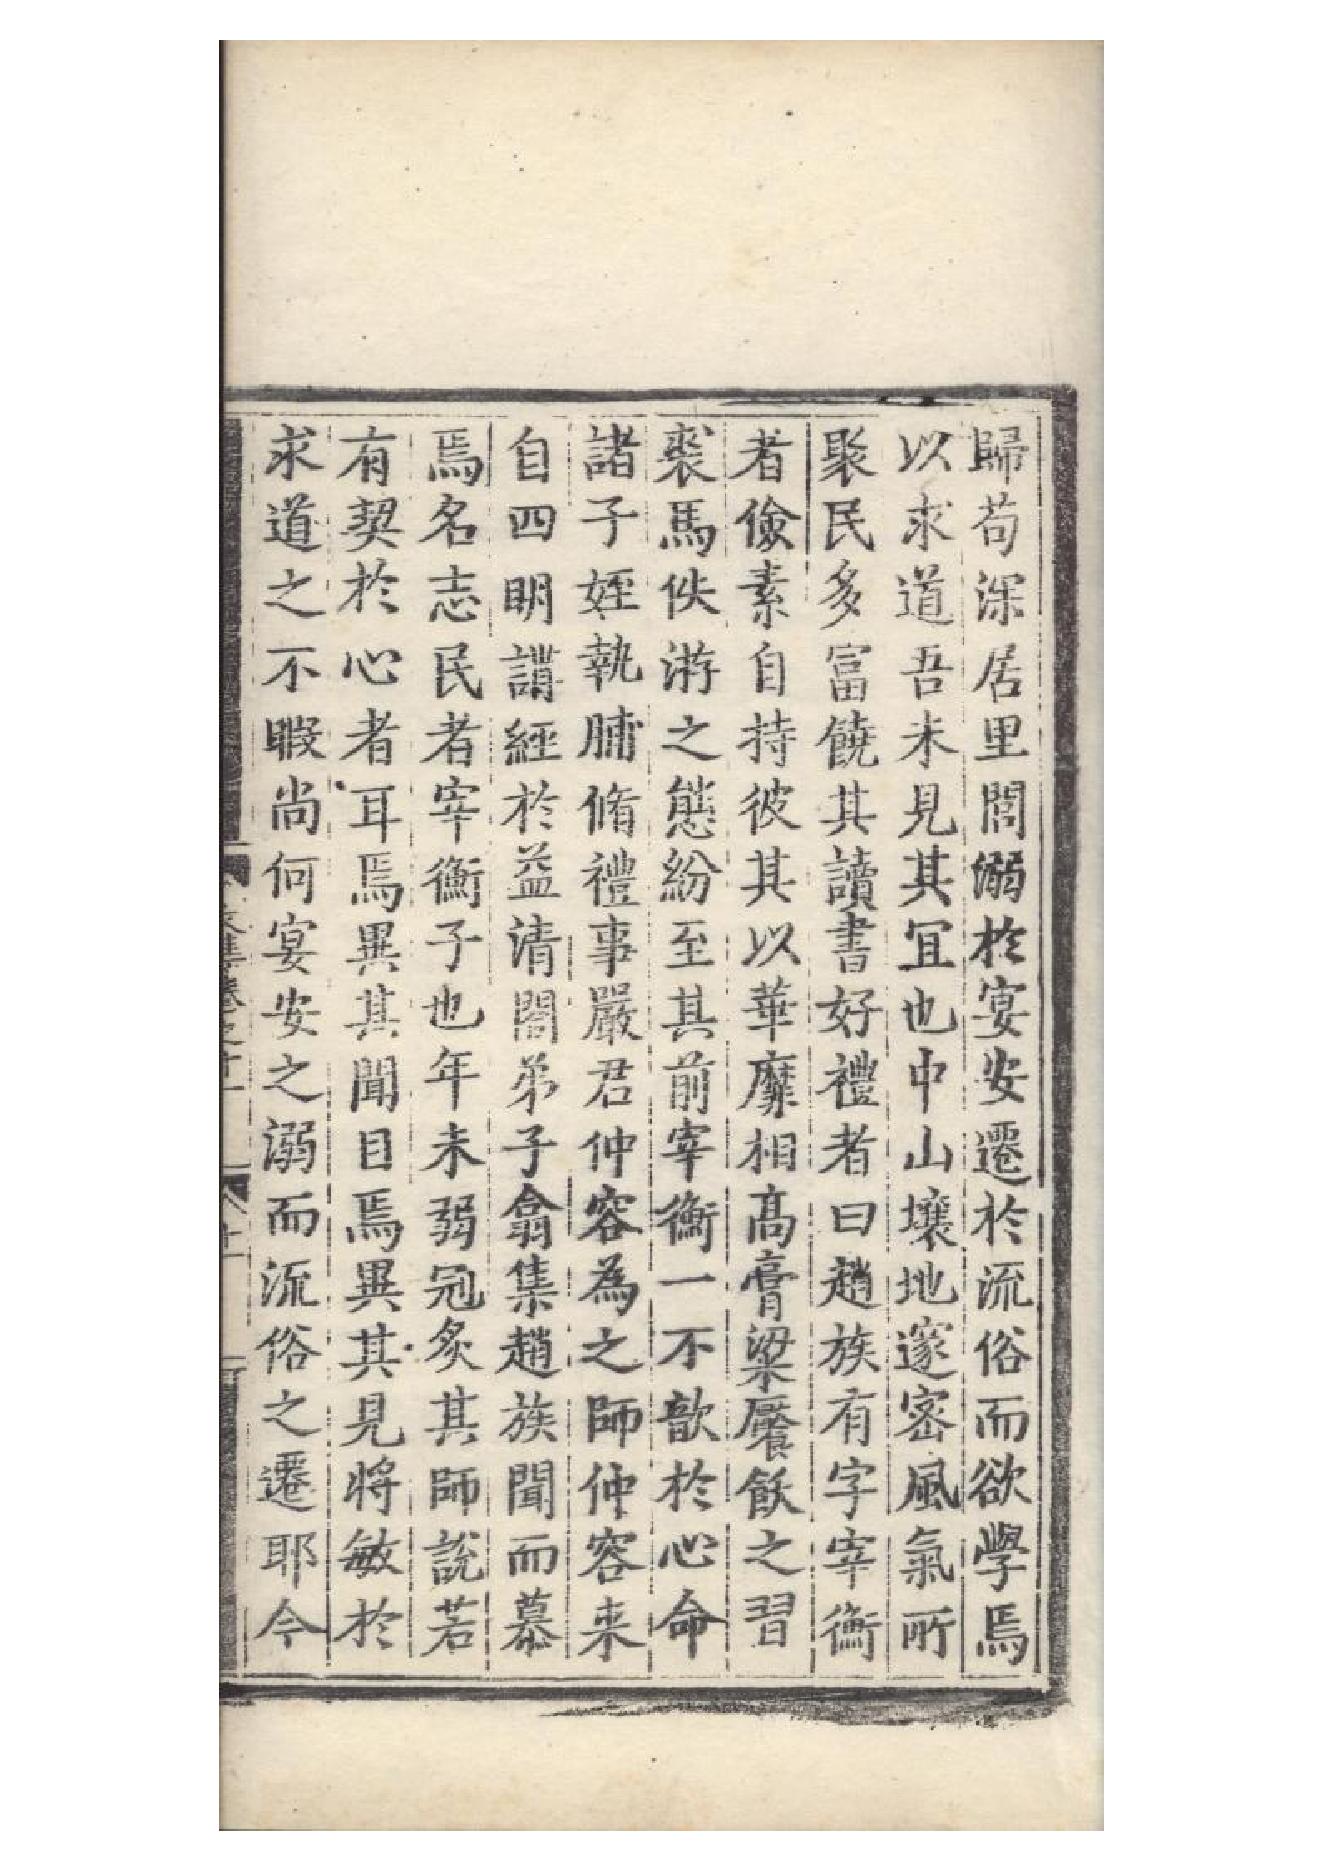 歸苟深居里閭溺於宴安遷於流俗而欲學焉
以求道吾未見其宜也中山壤地邃密風氣所
聚民多富饒其讀書好禮者曰趙族有字宰衡
者儉素自持彼其以華靡相高膏粱饜飫之習
裘馬佚游之態紛至其前宰衡一不歆於心命
諸子姪執脯脩禮事嚴君仲容為之師仲容来
自四明講經於益清閣弟子翕集趙族聞而慕
焉名志民者宰衡子也年未弱冠炙其師說若
有契於心者耳焉異其聞目焉異其見將敏於
求道之不暇尚何宴安之溺而流俗之遷耶今
文集卷之十一